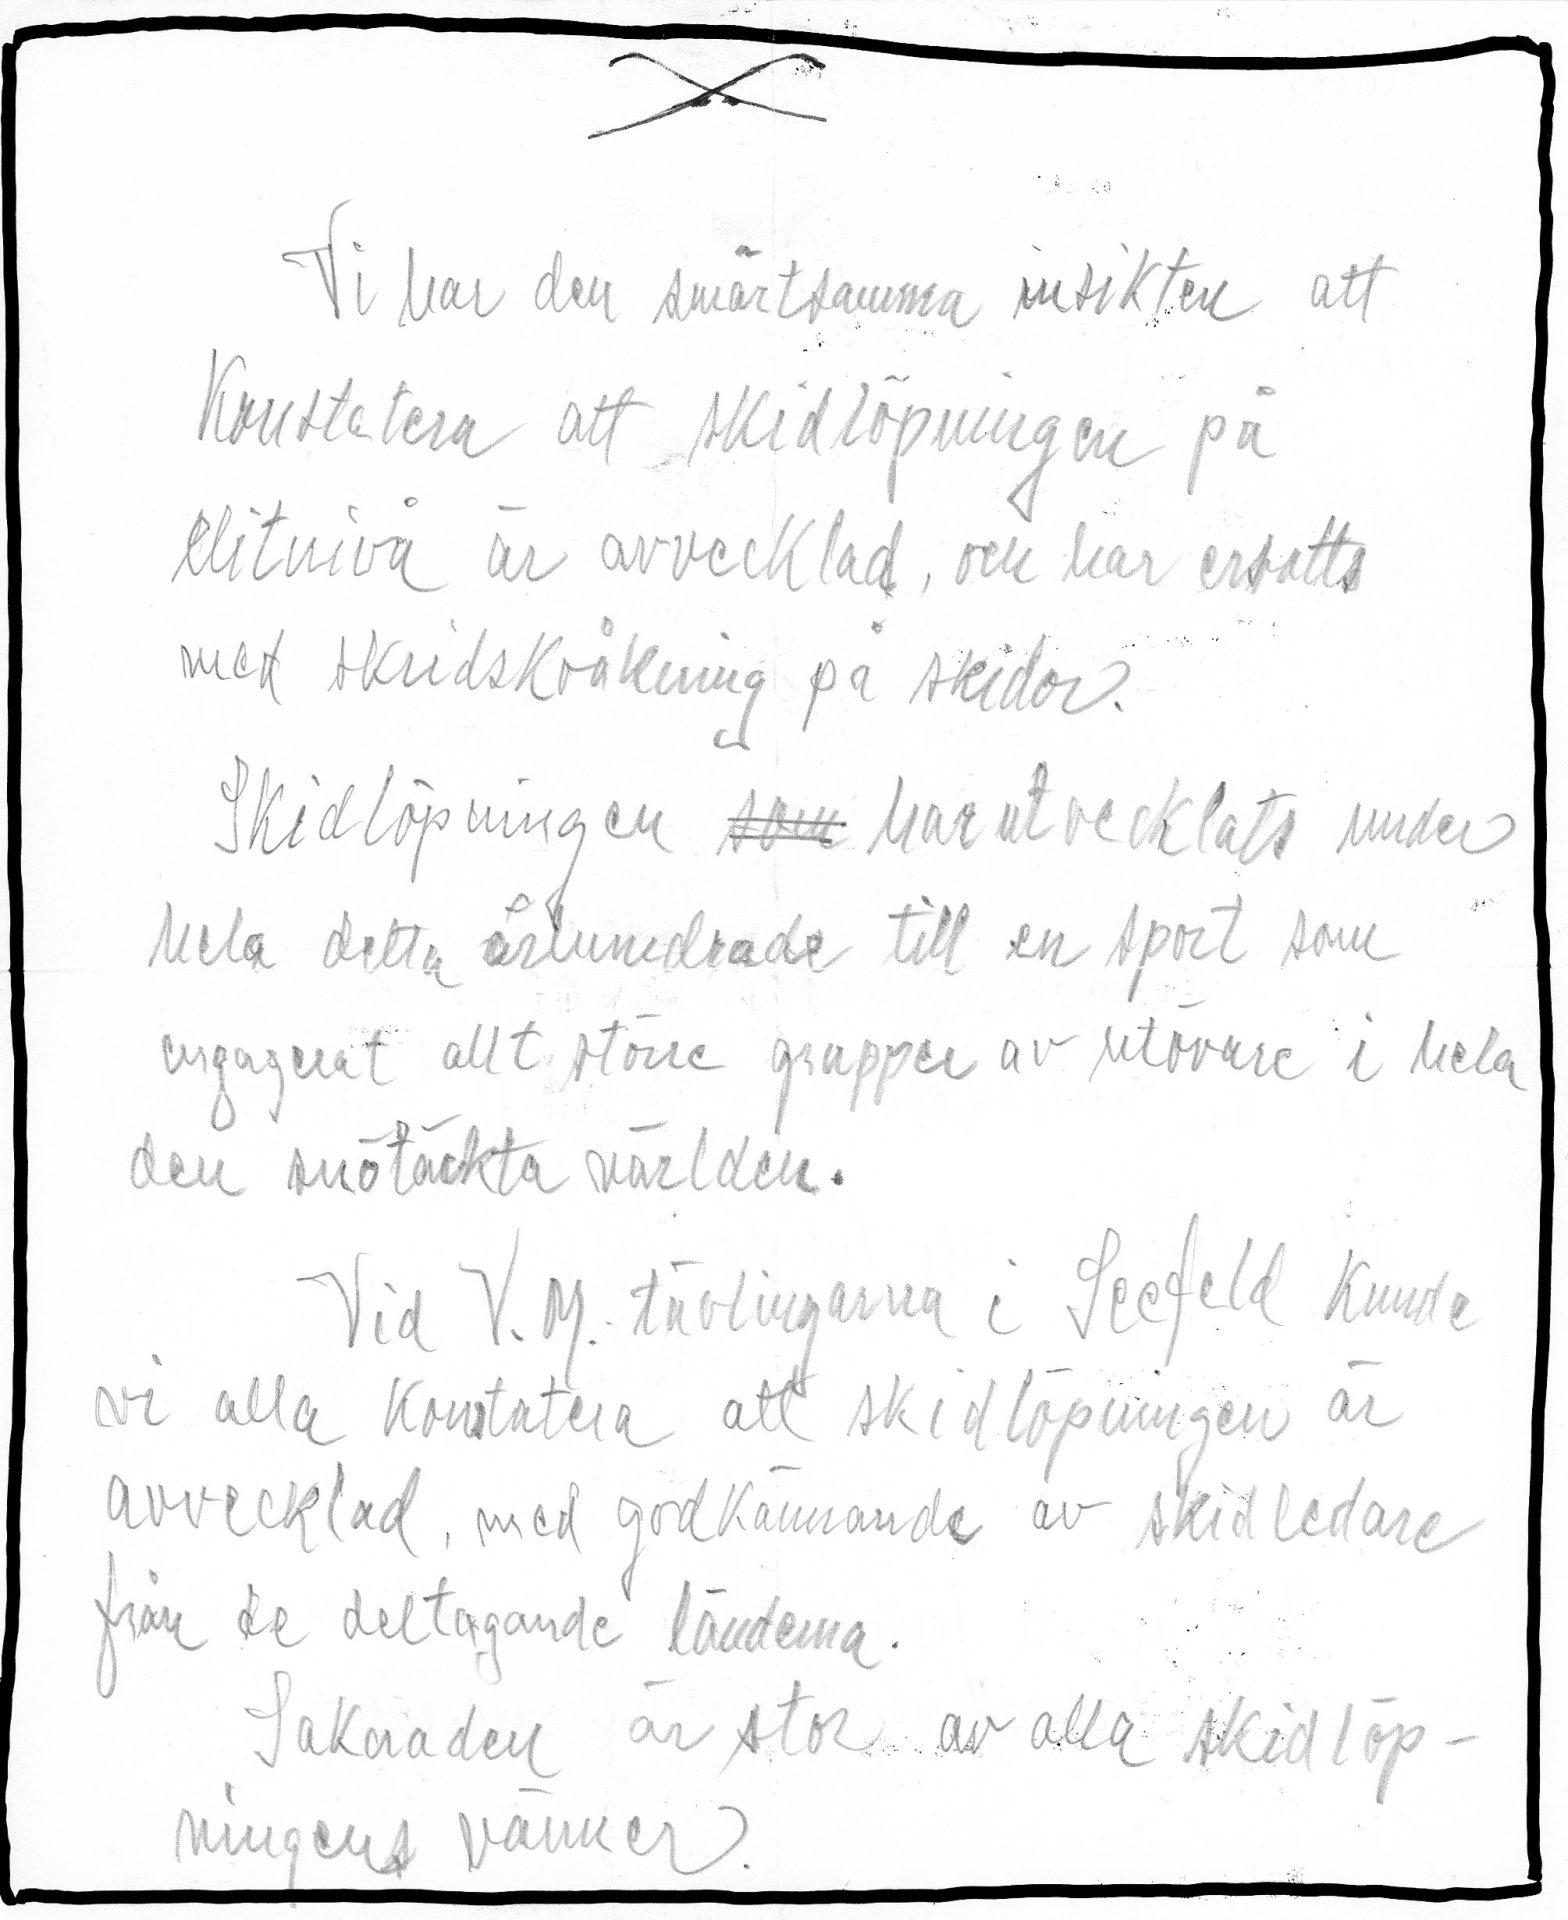 Vi har den smärtsamma insikten att
Konstatera att skidlöpningen på
elitnivå är avvecklad, och har ersatts
med skridskoåkning på skidor.
Skidlöpningen som har utvecklats under
hela detta århundrade till en sport som
engagerat allt större grupper av utövare i hela
den snötäckta världen.
Vid V.M. tävlingarna i Seefeld Kunde
vi alla Konstatera att skidlöpningen är
avvecklad, med godkännande av skidledare
från de deltagande länderna.
Saknaden är stor av alla skidlöp-
ningens vänner.